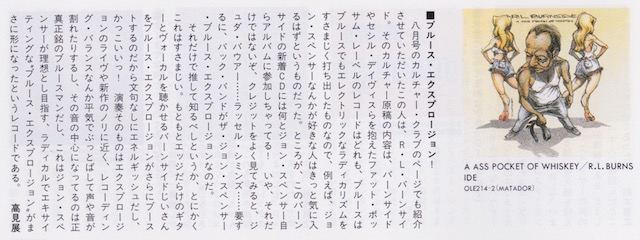 ■ブルース・エクスプロージョン！
八月号のカルチャー・クラブのページでも紹介
させていただいたこの人は、R・L・バーンサイ
ド。そのカルチャー原稿の内容は、バーンサイド
やセシル・デイヴィスらを抱えたファット・ポッ
サム・レーベルのレコードはどれも、ブルースは
ブルースでもエレクトリックなラディカリズムを
すさまじく打ち出したものなので、例えば、ジョ
ン・スペンサーなんかが好きな人はきっと気に入
るはずというものだった。ところが、このバーン
サイドの新着CDには何とジョン・スペンサー自
らアルバムに参加しちゃってる！　いや、それだ
けではないぞ、クレジットをよく見てみると、ジ
ュダ・バウアー……ラッセル・シミンズ……要す
るに、バック・バンドがザ・ジョン・スペンサー
・ブルース・エクスプロージョンなのだ。
それだけで推して知るべしというか、とにかく
これはすさまじい。もともとエッジだらけのギタ
ーとヴォーカルを聴かせるバーンサイドじいさん
をブルース・エクスプロージョンがさらにブース
トするのだから文句なしにエネルギッシュだし、
かっこいいっ！　演奏そのものはエクスプロージ
ョンのライヴや新作のノリに近く、レコーディン
グ・バランスなんか平気でぶっとばして声や音が
割れたりする、その音の中心になってるのは正
真正銘のブルースマンだし、これはジョン・スペ
ンサーが理想とし目指す、ラディカルでエキサイ
ティングな"ブルース・エクスプロージョン"がま
さに形になったというレコードである。　高見展
R.L. BURNSIDE
A ASS POCKET OF WHISKEY／R.L.BURNS
IDE
OLE214-2(MATADOR)